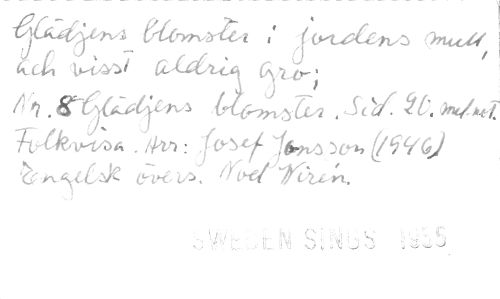 Glädjens blomster i jordens mull,
ack visst aldrig gro;
Nr. 8 Glädjens blomster. Sid. 20. mel.not.
Folkvisa. Arr: Josef Jonsson (1946)
Engelsk övers. Noel Wirén.
SWEDEN SINGS 1955